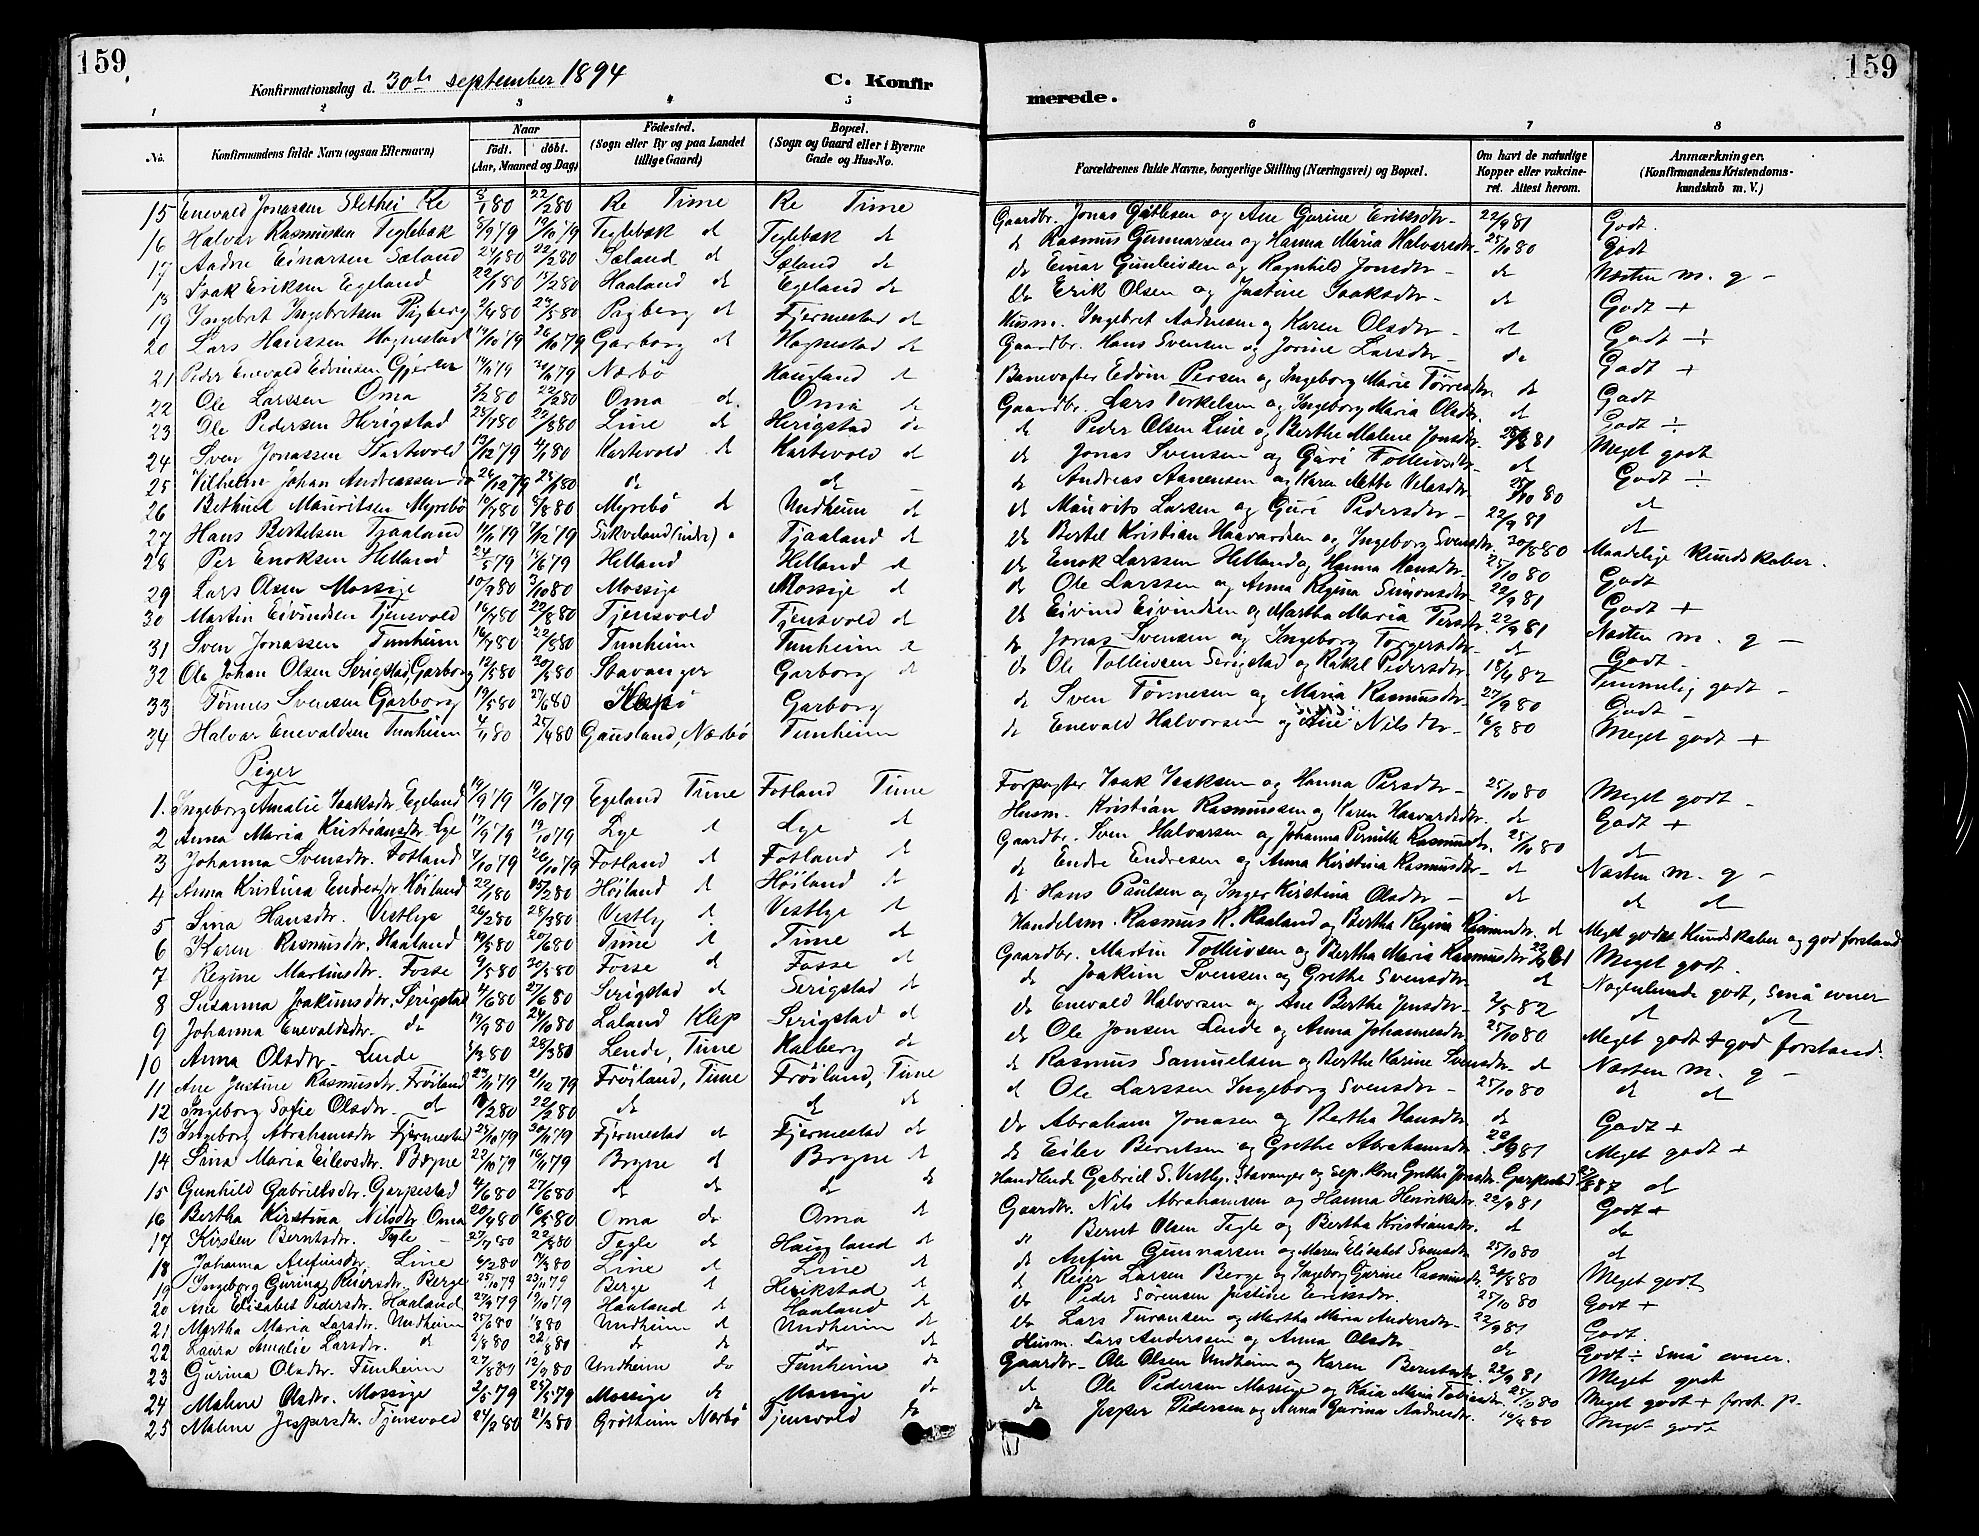 159
159
Konfirmationsdag d. 30te september 1894
C. Konfir
merede.
1 2 3 4 5 6 7 8
No. Konfirmandens fulde Navn (ogsaa Efternavn) Naar födt. döbt. (Aar, Maaned og Dag) Födested. (Sogn eller By og paa Landet tillige Gaard) Bopæl. (Sogn og Gaard eller i Byerne Gade og Hus-No. Forældrenes fulde Navne, borgerlige Stilling (Næringsvei) og Bopæl. Om havt de naturlige Kopper eller vakcineret. Attest herom. Anmærkninger. (Konfirmandens Kristendomskundskab m. V.)
15 Enevald Jonassen Slethei Re 8/1 80 22/2 80 Re Time Re Time Gaardbr. Jonas Gitlesen og Ane Gurine Eriksdtr - 22/9 81 Godt.
16 Halvar Rasmussen Teglebæk 8/9 79 19/10 79 Teglebæk d Teglebæk d d Rasmus Gunnarsen og Hanna Maria Halvarsdtr. 25/10 80 Godt
17 Aadne Einarsen Sæland 24/1 80 22/2 80 Sæland d Sæland d d Einar Gunleivsen og Ragnhild Jonsdtr - d Næsten m. g -
18 Isak Eriksen Egeland 22/1 80 15/2 80 Haaland d Egeland d d Erik Olsen og Justine Isaksdtr - d Godt +
19 Ingebrit Ingebritsen Pigberg 2/4 80 23/5 80 Pigberg d Fjermestad d Husm. Ingebret Aadnesen og Karen Olsdtr - d Godt ÷
20 Lars Hanssen Hognestad 14/10 79 26/10 79 Garborg d Hognestad d Gaardbr. Hans Svensen og Jorine Larsdtr - d Godt +
21 Peder Enevald Edvinsen Gjerten 14/11 79 30/11 79 Nærbö Haugland d Banevogter Edvin Persen og Ingeborg Marie Tørresdtr d Godt
22 Ole Larssen Oma 5/2 80 22/2 80 Oma d. Oma d Gaardbr. Lars Torkelsen og Ingeborg Maria Olsdtr. d Godt ÷
23 Ole Pedersen Herigstad 28/7 80 22/8 80 Line d Herigstad d d Peder Olsen Line og Berthe Malene Jonsdtr. 81 Meget godt
24 Sven Jonassen Kartevold 13/12 79 4/1 80 Kartevold d Kartevold d d Jonas Svensen og Guri Tolleivsdtr d Godt ÷
25 Vilhelm Johan Andreassen d 26/12 79 25/1 80 d d d Andreas Aanensen og Karen Mette Velasdtr 25/10 80 d
26 Bethuel Mauritsen Myrebø 10/7 80 8/8 80 Myrebö d Undheim d d Mauvits Larsen og Guri Pedersdtr - 22/9 81 d
27 Hans Bertelsen Tjaaland 11/11 79 7/12 79 Sikveland (indr) d Tjaaland d d Bertel Kristian Haavardsen og Ingeborg Svensdtr. 30/8 80 Maadelige Kundskaber.
28 Per Enoksen Helland 24/5 79 15/6 79 Helland Helland d d Enok Larssen Helland og Hanna Hansdtr. 25/10 80 Godt
29 Lars Olsen Mossige 10/9 80 3/10 80 Mossige Mossige d d Ole Larssen og Anna Regina Simonsdtr. 22/9 81 Godt +
30 Martin Eivindsen Tjensvold 16/7 80 22/8 80 Tjensvold Tjensvold d d Eivind Eivindsen og Martha Maria Persdtr. 22/9 81 Næsten m. g -
31 Sven Jonassen Tunheim 16/7 80 22/8 80 Tunheim Tunheim d d Jonas Svensen og Ingeborg Torgersdtr. d Godt -
32 Ole Johan Olsen Serigstad, Garborg 12/3 80 30/5 80 Stavanger Garborg d d Ole Tolleivsen Serigstad og Rakel Pedersdtr. 18/4 82 Temmelig godt -
33 Tönnes Svensen Garborg 19/5 80 27/6 80 Klep Garborg d Sven Tørresen og Maria Rasmusdtr. 27/9 80 Godt -
34 Halvar Enevaldsen Tunheim 4/4 80 25/4 80 Gausland, Nærbö Tunheim d Enevald Halvorsen og Ane Nilsdtr - 16/8 80 Meget godt +
Piger
1. Ingeborg Amalie Isaksdtr. Egeland 19/9 79 19/10 79 Egeland Time Fotland Time Forpagter Isak Isaksen og Hanna Persdtr - 25/10 80 Meget godt -
2 Anna Maria Kristiansdtr. Lye 17/9 79 19/10 79 Lye d Lye d Husm. Kristian Rasmussen og Karen Haavardsdtr. d Godt +
3 Johanna Svensdtr. Fotland 7/10 79 26/10 79 Fotland d Fotland d Gaardbr. Sven Halvarsen og Johanna Pernille Rasmusdtr. 25/10 80 d
4 Anna Kristina Endresdtr Höiland 22/1 80 15/2 80 Höiland d Höiland d d Endre Endresen og Anna Kirstina Rasmusdtr - d Næsten m. g -
5 Sina Hansdtr. Vestlye 26/2 80 28/3 80 Vestly d Vestlye d d Hans Paulsen og Inger Kirstina Olsdtr - d d d
6 Karen Rasmusdtr. Haaland 19/5 80 20/6 80 Time d Time d Handelsm. Rasmus R. Haaland og Bertha Regina Rasmusdtr. d Meget godt Kundskaber og god forstand
7 Regine Martinsdtr. Fosse 9/5 80 30/5 80 Fosse d Fosse d Gaardbr. Martin Tolleivsen og Bertha Maria Rasmusdtr 22/9 81 Meget godt.
8 Susanna Joakimsdtr. Serigstad 4/6 80 27/6 80 Serigstad d Serigstad d d Joakim Svensen og Grethe Svensdtr. d Nogenlunde godt, små evner
9 Johanna Enevaldsdtr. d 19/9 80 24/10 80 Laland Klep Serigstad d d Enevald Halvorsen og Ane Berthe Jensdtr - 2/5 82 d d
10 Anna Olsdtr - Lende 5/3 80 28/3 80 Lende, Time Kalberg d d Ole Jonsen Lende og Anna Johannesdtr 25/10 80 Meget godt + god forstand.
11 Ane Justine Rasmusdtr. Fröiland 23/11 79 21/12 79 Fröiland, Time Fröiland, Time d Rasmus Samuelsen og Berthe Karine Svensdtr. d Næsten m. g -
12 Ingeborg Sofie Olsdtr. d /2 80 22/2 80 d d d d Ole Larssen Ingeborg Svensdtr - 25/10 80 d d
13 Ingeborg Abrahamsdtr Fjermestad 25/10 79 30/11 79 Fjermestad d Fjermestad d d Abraham Jonasen og Bertha Hansdtr d Godt +
14 Sina Maria Eilevsdtr. Bryne 22/10 79 16/11 79 Bryne d Bryne d d Eilev Berntsen og Grethe Abrahamsdtr 22/9 81 Meget godt +
15 Gunhild Gabrielsdtr. Garpestad 4/6 80 27/6 80 d d d d Handlende Gabriel S. Vestly. Stavanger og sep. Kone Grethe Jonsdtr. Garpestad /8 87 d
16 Bertha Kirstina Nilsdtr Oma 20/4 80 16/5 80 Oma d Oma d Gaardbr. Nils Abrahamsen og Hanna Henriksdtr. 22/9 81 Godt +
17 Kirsten Berntsdtr. Tegle - 27/7 80 22/8 80 Tegle d Haugland d d Bernt Olsen Tegle og Bertha Kristiansdtr. d d
18 Johanna Anfinsdtr. Line 4/2 80 14/3 80 Line d Line d d Anfin Gunnarsen og Maren Elisabet Svensdtr 25/10 80 d
19 Ingeborg Gurina Reiersdtr. Berge 25/10 79 23/11 79 Berge d Herikstad d d Reier Larsen Berge og Ingeborg Gurine Rasmusdtr. 30/8 80 Meget godt
20 Ane Elisabet Pedersdtr. Haaland 27/9 79 19/10 79 Haaland d Haaland d d Peder Sörensen Justine Eriksdtr. 25/10 80 Godt +
21 Martha Maria Larsdtr. Undheim 25/6 80 1/8 80 Undheim d Undheim d d Lars Turansen og Martha Maria Andersdtr - 22/9 81 Godt.
22 Laura Amalie Larsdtr. d 2/8 80 22/8 80 d d d d Husm. Lars Anderssen og Anna Olsdtr d Godt ÷ små evner.
23 Gurina Olsdtr. Tunheim 27/8 80 12/9 80 Undheim d Tunheim d Gaardbr - Ole Olsen Undheim og Karen Berntsdtr 22/9 81 Meget godt
24 Malene Olsdtr. Mossige 2/5 79 25/5 79 Mossige d Mossige d d Ole Pedersen Mossige og Kaia Maria Tobiasdtr. 25/10 80 Meget godt + forst. p.
25 Malene Jespersdtr. Tjensvold 24/2 80 21/3 80 Grötheim Nærbö Tjensvold d d Jesper Pedersen og Anna Gurina Aadnesdtr. 16/8 80 Meget godt